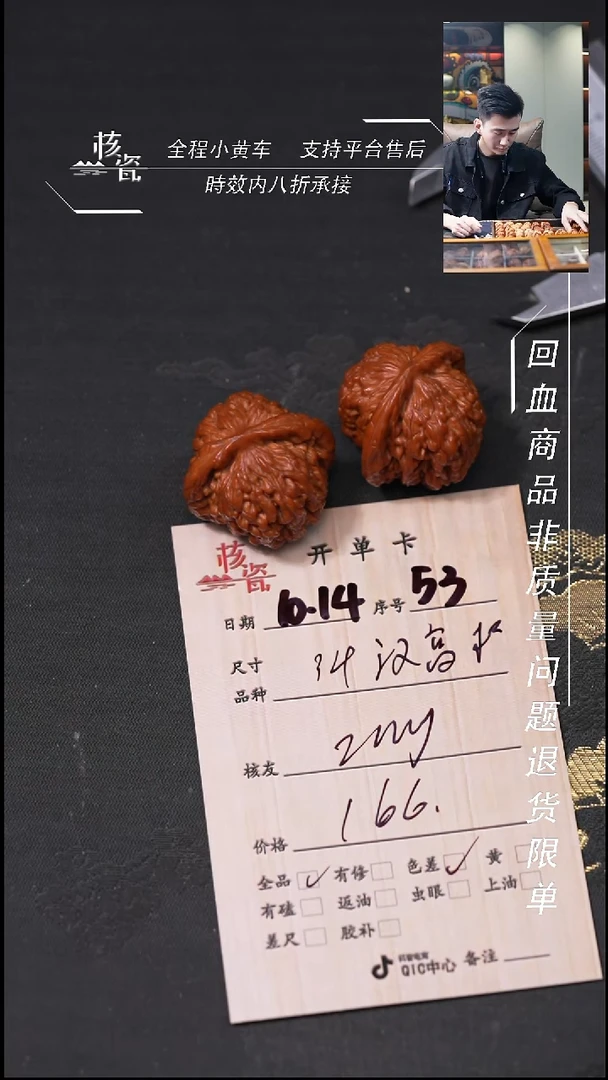 核瓷
全程小黄车 支持平台售后
時效内八折承接
回血商品非质量问题退货限单
核瓷 开单卡
日期 10.14 序号 53
尺寸
品种 34 汉宫
核友 zmy
价格 166.
全品 ✓ 有修 色差 ✓ 黄
有磕 返油 虫眼 上油
差尺 胶补
抖音电商
QIC中心 备注